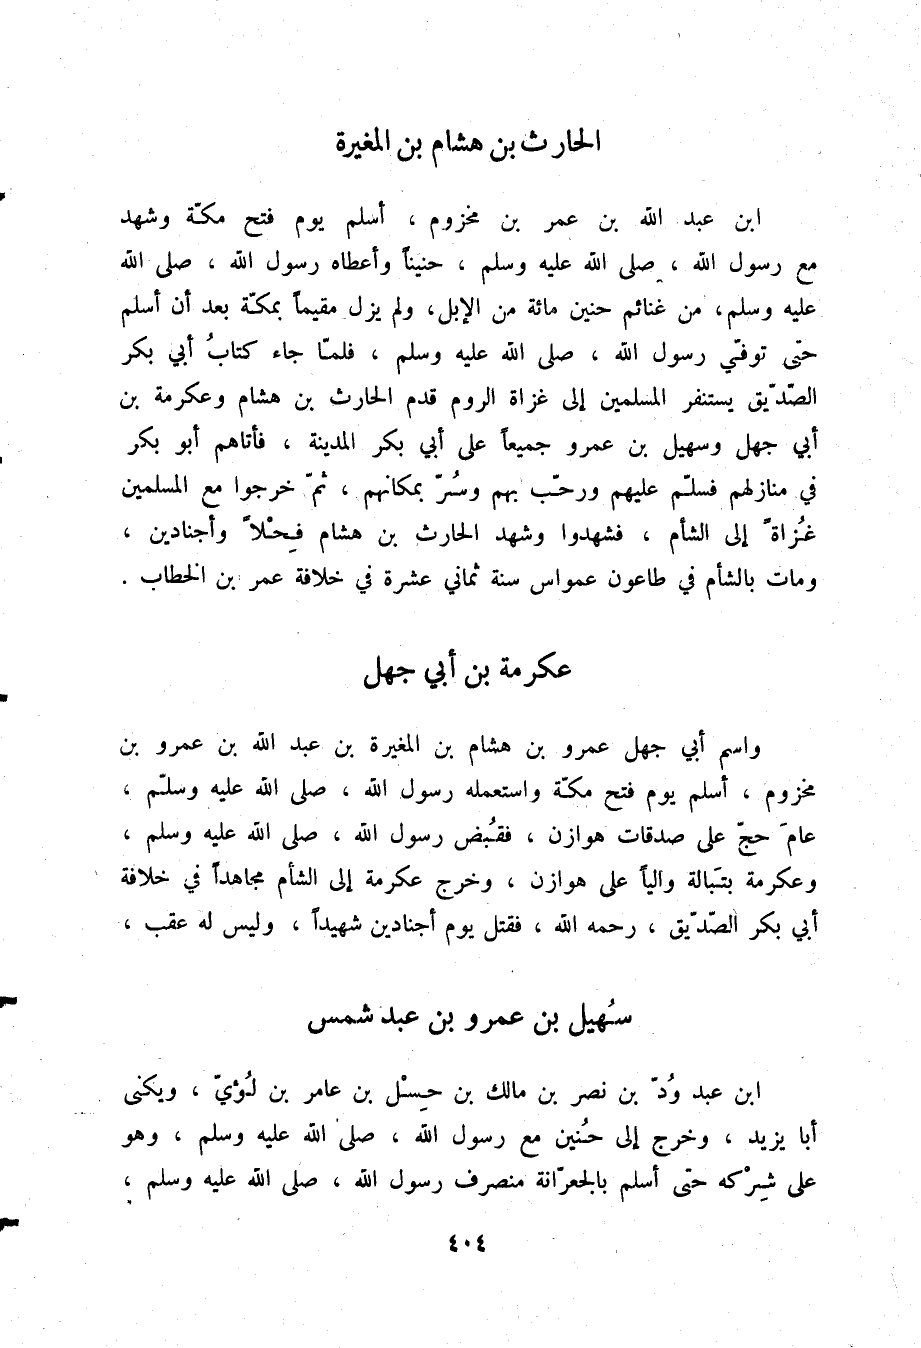 الحارث بن هشام بن المغيرة
ابن عبد الله بن عمر بن مخزوم ، أسلم يوم فتح مكّة وشهد
مع رسول الله ، صلى الله عليه وسلم ، حنيناً وأعطاه رسول الله ، صلى الله
عليه وسلم، من غنائم حنين مائة من الإبل، ولم يزل مقيماً بمكّة بعد أن أسلم
حتّى توفّي رسول الله ، صلى الله عليه وسلم ، فلمّا جاء كتابُ أبي بكر
الصّدّيق يستنفر المسلمين إلى غزاة الروم قدم الحارث بن هشام وعكرمة بن
أبي جهل وسهيل بن عمرو جميعاً على أبي بكر المدينة ، فأتاهم أبو بكر
في منازلهم فسلّم عليهم ورحّب بهم وسُرّ بمكانهم ، ثمّ خرجوا مع المسلمين
غُزاةً إلى الشأم ، فشهدوا وشهد الحارث بن هشام فِحْلاً وأجنادين ،
ومات بالشأم في طاعون عمواس سنة ثماني عشرة في خلافة عمر بن الخطاب .
عكرمة بن أبي جهل
واسم أبي جهل عمرو بن هشام بن المغيرة بن عبد الله بن عمرو بن
مخزوم ، أسلم يوم فتح مكّة واستعمله رسول الله ، صلى الله عليه وسلّم ،
عامَ حجّ على صدقات هوازن ، فقُبض رسول الله ، صلى الله عليه وسلم ،
وعكرمة بتَبالة والياً على هوازن ، وخرج عكرمة إلى الشأم مجاهداً في خلافة
أبي بكر الصّدّيق ، رحمه الله ، فقتل يوم أجنادين شهيداً ، وليس له عقب ،
سُهيل بن عمرو بن عبد شمس
ابن عبد وُدّ بن نصر بن مالك بن حِسْل بن عامر بن لُؤيّ ، ويكنى
أبا يزيد ، وخرج إلى حُنين مع رسول الله ، صلى الله عليه وسلم ، وهو
على شِرْكه حتّى أسلم بالجعرّانة منصرف رسول الله ، صلى الله عليه وسلم ،
٤٠٤